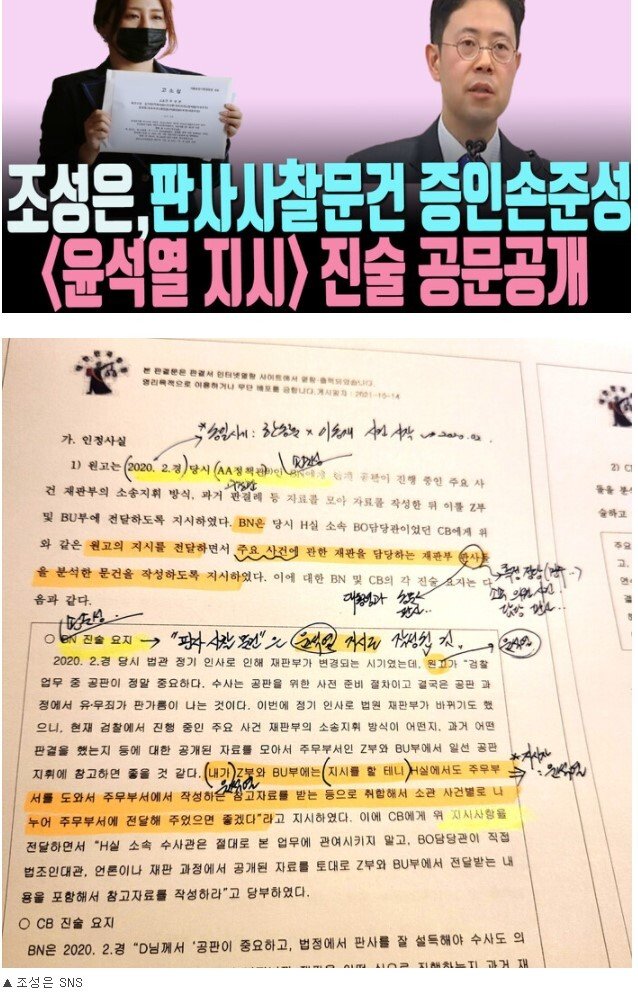 고 소 장
조성은,판사사찰문건 증인손준성
〈윤석열 지시〉 진술 공문공개
본 판결문은 판결서 인터넷열람 사이트에서 열람·출력되었습니다.
영리목적으로 이용하거나 무단 배포를 금합니다.게시일자 : 2021-10-14
가. 인정사실
1) 원고는 2020. 2.경 당시 AA정책관이인 BN에게 공판이 진행 중인 주요 사
건 재판부의 소송지휘 방식, 과거 판결례 등 자료를 모아 자료를 작성한 뒤 이를 Z부
및 BU부에 전달하도록 지시하였다. BN은 당시 H실 소속 BO담당관이었던 CB에게 위
와 같은 원고의 지시를 전달하면서 주요 사건에 관한 재판을 담당하는 재판부 판사들
을 분석한 문건을 작성하도록 지시하였다. 이에 대한 BN 및 CB의 각 진술 요지는 다
음과 같다.
○ BN 진술 요지 → "판사 사찰 문건"은 윤석열 지시로 작성된 것.
윤석열
2020. 2.경 당시 법관 정기 인사로 인해 재판부가 변경되는 시기였는데, 원고가 "검찰
업무 중 공판이 정말 중요하다. 수사는 공판을 위한 사전 준비 절차이고 결국은 공판 과
정에서 유·무죄가 판가름이 나는 것이다. 이번에 정기 인사로 법원 재판부가 바뀌기도 했
으니, 현재 검찰에서 진행 중인 주요 사건 재판부의 소송지휘 방식이 어떤지, 과거 어떤
판결을 했는지 등에 대한 공개된 자료를 모아서 주무부서인 Z부와 BU부에서 일선 공판
지휘에 참고하면 좋을 것 같다. 내가 Z부와 BU부에는 지시를 할 테니 H실에서도 주무부
서를 도와서 주무부서에서 작성하는 참고자료를 받는 등으로 취합해서 소관 사건별로 나
누어 주무부서에 전달해 주었으면 좋겠다"라고 지시하였다. 이에 CB에게 위 지시사항을
전달하면서 "H실 소속 수사관은 절대로 본 업무에 관여시키지 말고, BO담당관이 직접
법조인대관, 언론이나 재판 과정에서 공개된 자료를 토대로 Z부와 BU부에서 전달받는 내
용을 포함해서 참고자료를 작성하라"고 당부하였다.
○ CB 진술 요지
BN은 2020. 2.경 "D님께서 '공판이 중요하고, 법정에서 판사를 잘 설득해야 수사도 의
2) C
들을 분석
하였다.
▲ 조성은 SNS